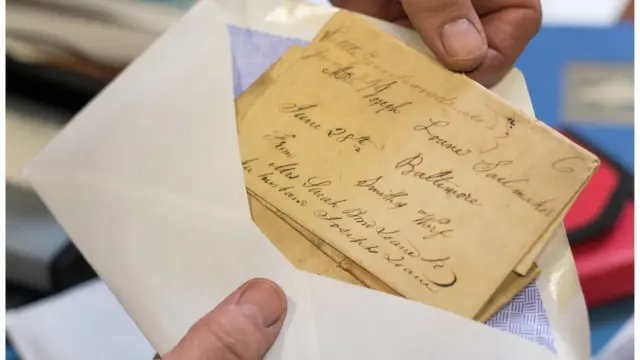 Mr Joseph Loane Sailmaker
Baltimore
June 28th Smiths Wrf
From
Mrs Sarah Ann Loane to
her husband
Joseph Loane